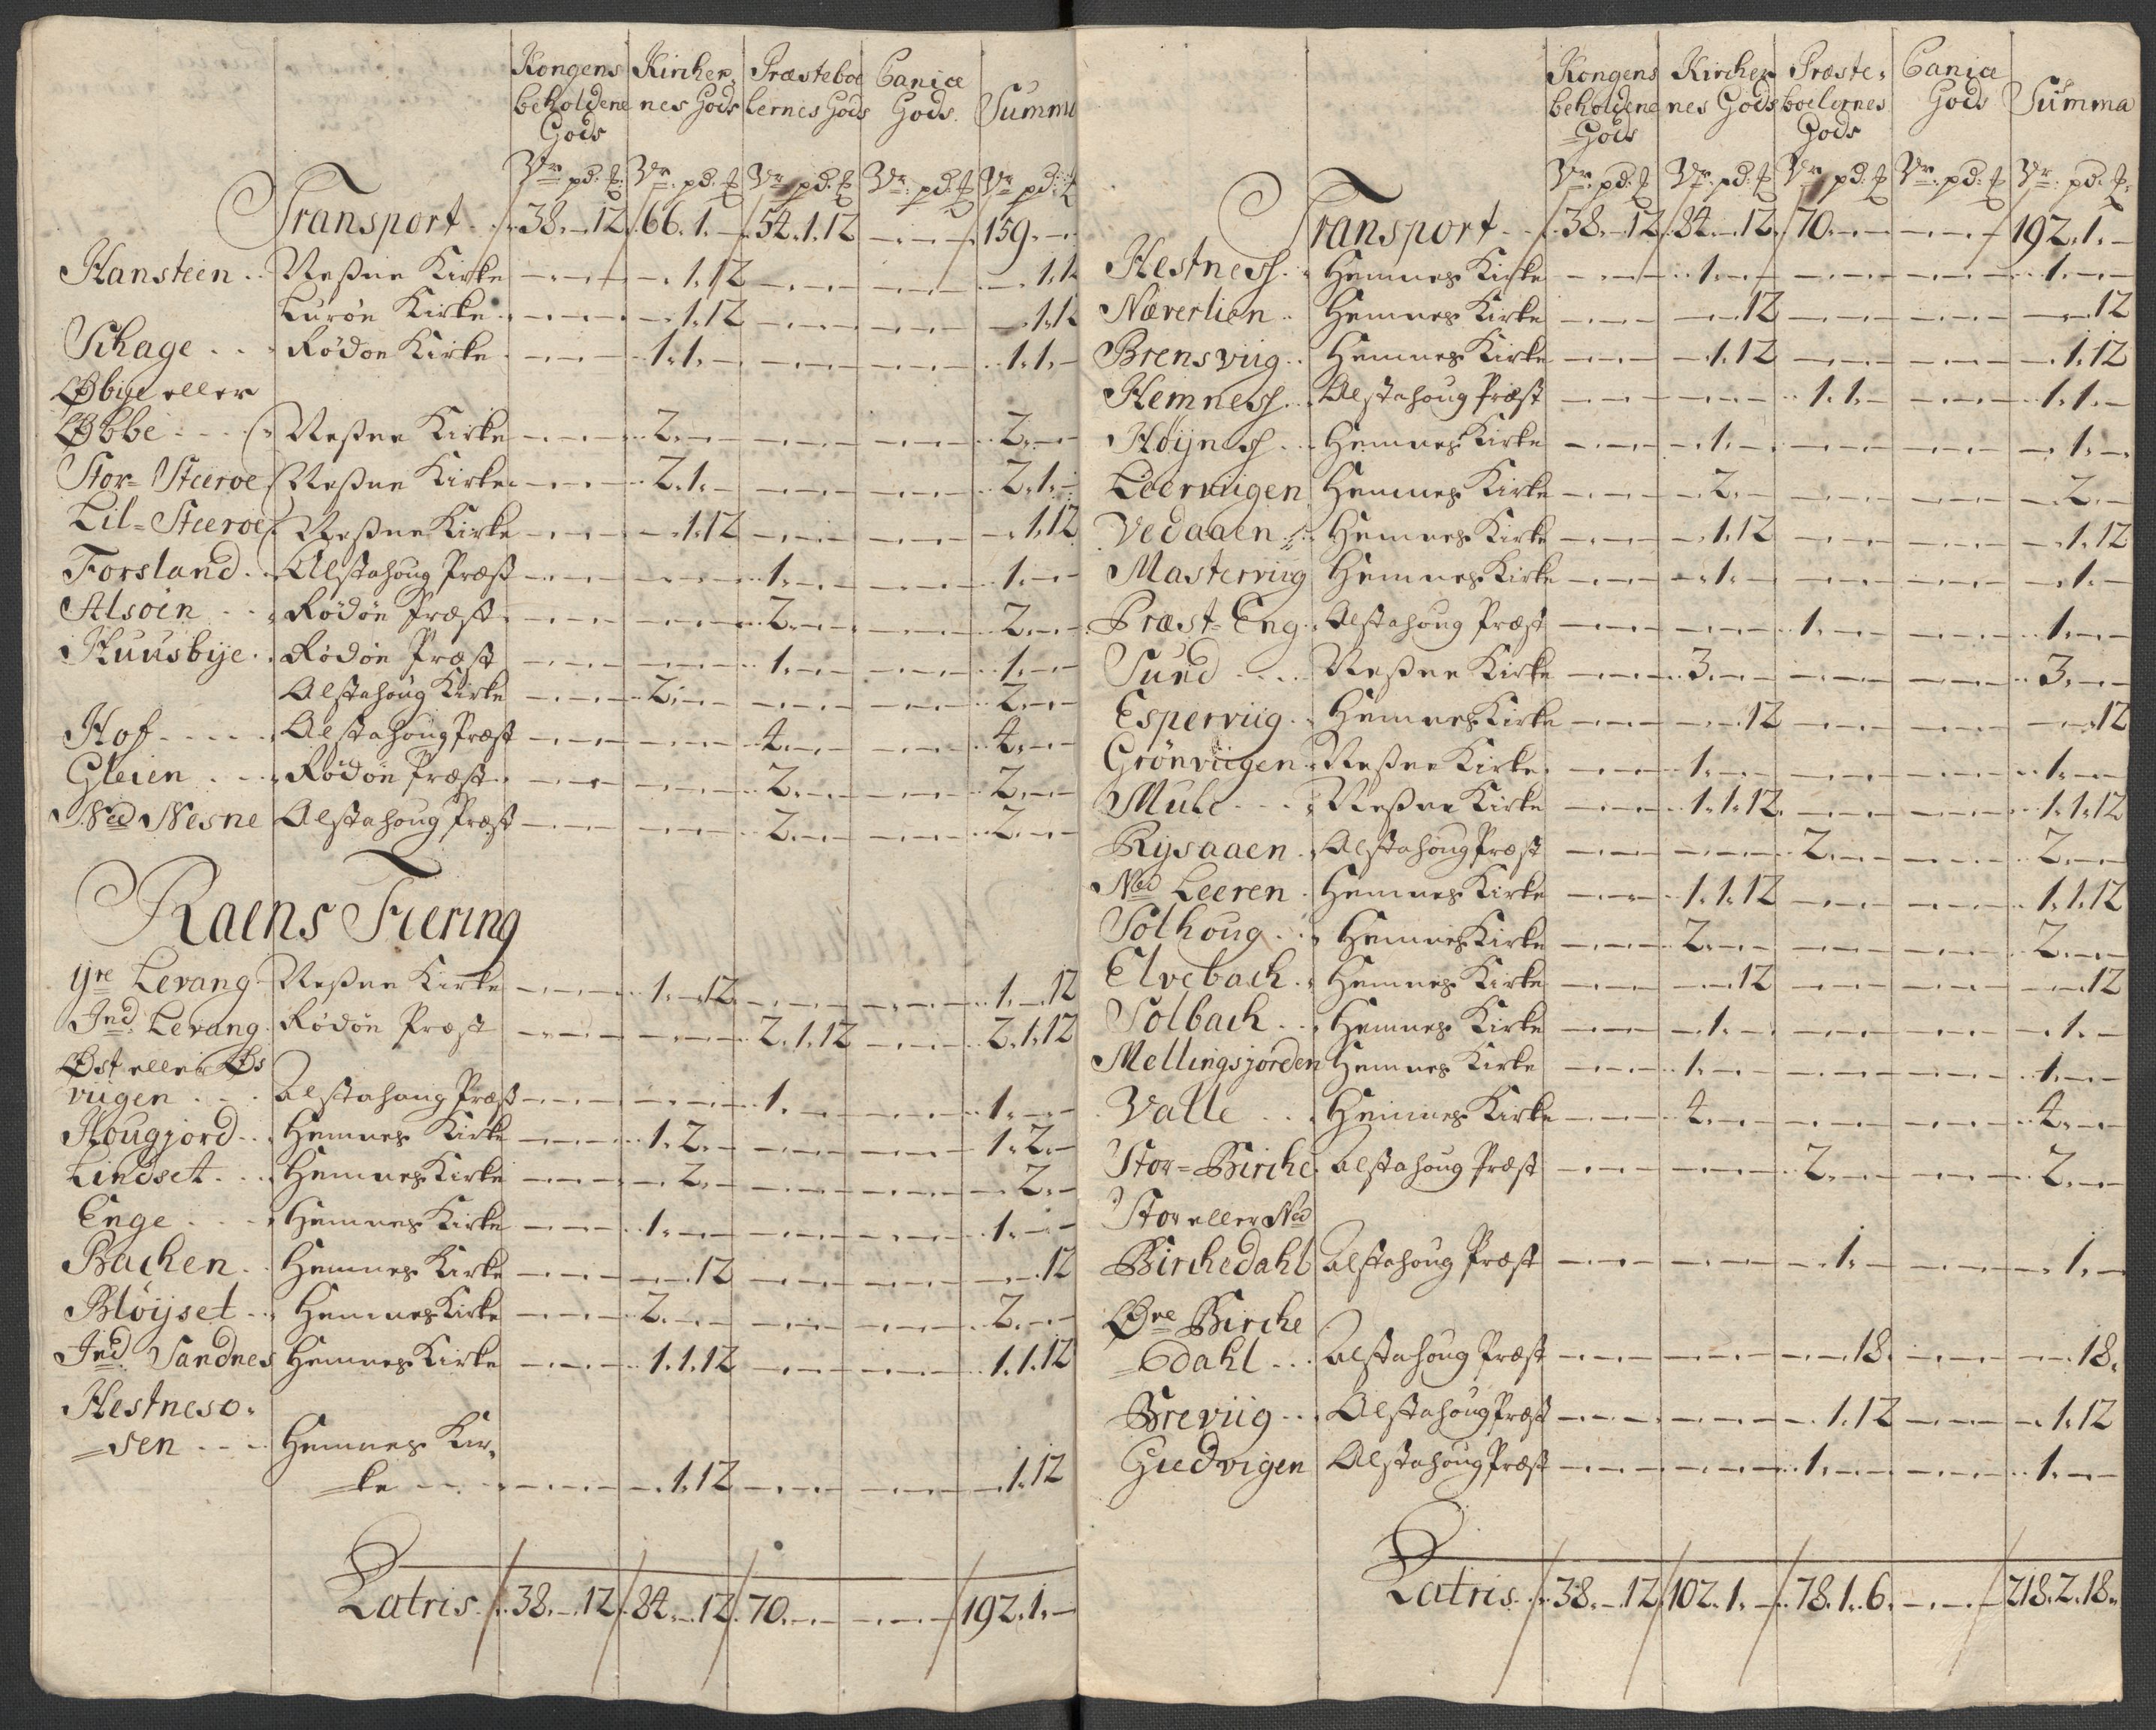 Kongens beholdene Gods | Kircher nes Gods | Præsteboe lernes Gods | Canice Gods. | Summa
Vr. pd. | Vr. pd. | Vr. pd. | Vr. pd. | Vr pd.
Transport. 38.-.12 | 66.1.- | 54.1.12 | -.-.- | 159.-.-
Hansteen .. Neßne Kirke -.-.- | -.1.12 | -.-.- | -.-.- | -.1.12
Lurøe Kirke -.-.- | -.1.12 | -.-.- | -.-.- | -.1.12
Schage ... Rødøe Kirke -.-.- | 1.1.- | -.-.- | -.-.- | 1.1.-
Øbye eller
Øbbe ... Neßne Kirke -.-.- | 2.-.- | -.-.- | -.-.- | 2.-.-
Stor= Steeroe Neßne Kirke -.-.- | 2.1.- | -.-.- | -.-.- | 2.1.-
Lil=Steeroe Neßne Kirke -.-.- | -.1.12 | -.-.- | -.-.- | -.1.12
Forsland .. Alstahoug Præst -.-.- | -.-.- | 1.-.- | -.-.- | 1.-.-
Alsøen ... Rødøe Præst -.-.- | -.-.- | 2.-.- | -.-.- | 2.-.-
Huusbye .. Rødøe Præst -.-.- | -.-.- | 1.-.- | -.-.- | 1.-.-
Alstahoug Kirke -.-.- | 2.-.- | -.-.- | -.-.- | 2.-.-
Hof .... Alstahoug Præst -.-.- | -.-.- | 4.-.- | -.-.- | 4.-.-
Gleien ... Rødøe Præst -.-.- | -.-.- | 2.-.- | -.-.- | 2.-.-
Ned Nesne Alstahoug Præst -.-.- | -.-.- | 2.-.- | -.-.- | 2.-.-
Raens Fiering
Yre Levang Neßne Kirke -.-.- | 1.-.12 | -.-.- | -.-.- | 1.-.12
Ind. Levang. Rødøe Præst -.-.- | -.-.- | 2.1.12 | -.-.- | 2.1.12
Øst eller Øs
viigen ... Alstahaug Præst -.-.- | -.-.- | 1.-.- | -.-.- | 1.-.-
Hougjord .. Hemnes Kirke -.-.- | 1.2.- | -.-.- | -.-.- | 1.2.-
Lindset ... Hemnes Kirke -.-.- | -.2.- | -.-.- | -.-.- | -.2.-
Enge .... Hemnes Kirke -.-.- | 1.-.- | -.-.- | -.-.- | 1.-.-
Bachen .. Hemnes Kirke -.-.- | -.-.12 | -.-.- | -.-.- | -.-.12
Bløyset .. Hemnes Kirke -.-.- | 2.-.- | -.-.- | -.-.- | 2.-.-
Ind. Sandnes Hemnes Kirke -.-.- | 1.1.12 | -.-.- | -.-.- | 1.1.12
Hestneso=
=sen ... Hemnes Kir=
ke ... -.-.- | -.1.12 | -.-.- | -.-.- | -.1.12
Latris. 38.-.12 | 84.-.12 | 70.-.- | -.-.- | 192.1.-
Kongens beholdene Gods | Kircher nes Gods | Præste= boelernes Gods | Canice Gods | Summa
Vr. pd. | Vr. pd. | Vr. pd. | Vr. pd. | Vr. pd.
Transport .. 38.-.12 | 84.-.12 | 70.-.- | -.-.- | 192.1.-
Hestness .. Hemnes Kirke -.-.- | -.1.- | -.-.- | -.-.- | -.1.-
Næverlien .. Hemnes Kirke -.-.- | -.-.12 | -.-.- | -.-.- | -.-.12
Brensviig .. Hemnes Kirke -.-.- | -.1.12 | -.-.- | -.-.- | -.1.12
Hemness .. Alstahoug Præst -.-.- | -.-.- | 1.1.- | -.-.- | 1.1.-
Høyness .. Hemnes Kirke -.-.- | -.1.- | -.-.- | -.-.- | -.1.-
Leerviigen Hemnes Kirke -.-.- | -.2.- | -.-.- | -.-.- | -.2.-
Vedaaen .. Hemnes Kirke -.-.- | -.1.12 | -.-.- | -.-.- | -.1.12
Masterviig Hemnes Kirke -.-.- | -.1.- | -.-.- | -.-.- | -.1.-
Præst= Eng. Alstahoug Præst -.-.- | -.-.- | 1.-.- | -.-.- | 1.-.-
Sund .... Neßne Kirke -.-.- | 3.-.- | -.-.- | -.-.- | 3.-.-
Esperviig .. Hemnes Kirke -.-.- | -.-.12 | -.-.- | -.-.- | -.-.12
Grønviigen Neßne Kirke -.-.- | 1.-.- | -.-.- | -.-.- | 1.-.-
Mule ... Neßne Kirke -.-.- | 1.1.12 | -.-.- | -.-.- | 1.1.12
Rysaaen .. Alstahoug Præst -.-.- | -.-.- | 2.-.- | -.-.- | 2.-.-
Ned Leeren . Hemnes Kirke -.-.- | 1.1.12 | -.-.- | -.-.- | 1.1.12
Solhoug ... Hemnes Kirke -.-.- | 2.-.- | -.-.- | -.-.- | 2.-.-
Elvebach .. Hemnes Kirke -.-.- | -.-.12 | -.-.- | -.-.- | -.-.12
Solbach ... Hemnes Kirke -.-.- | -.1.- | -.-.- | -.-.- | -.1.-
Mellingsjorden Hemnes Kirke -.-.- | 1.-.- | -.-.- | -.-.- | 1.-.-
Valle ... Hemnes Kirke -.-.- | 4.-.- | -.-.- | -.-.- | 4.-.-
Stor=Birche. Alstahoug Præst -.-.- | -.-.- | 2.-.- | -.-.- | 2.-.-
Stor eller Ned
Birchedahl Alstahoug Præst -.-.- | -.-.- | -.1.- | -.-.- | -.1.-
Øre Birche
=dahl ... Alstahoug Præst -.-.- | -.-.- | -.-.18. | -.-.- | -.-.18.
Breviig ... Alstahoug Præst -.-.- | -.-.- | -.1.12 | -.-.- | -.1.12
Giedvigen Alstahoug Præst -.-.- | -.-.- | 1.-.- | -.-.- | 1.-.-
Latris. 38.-.12 | 102.1.- | 78.1.6. | -.-.- | 218.2.18.